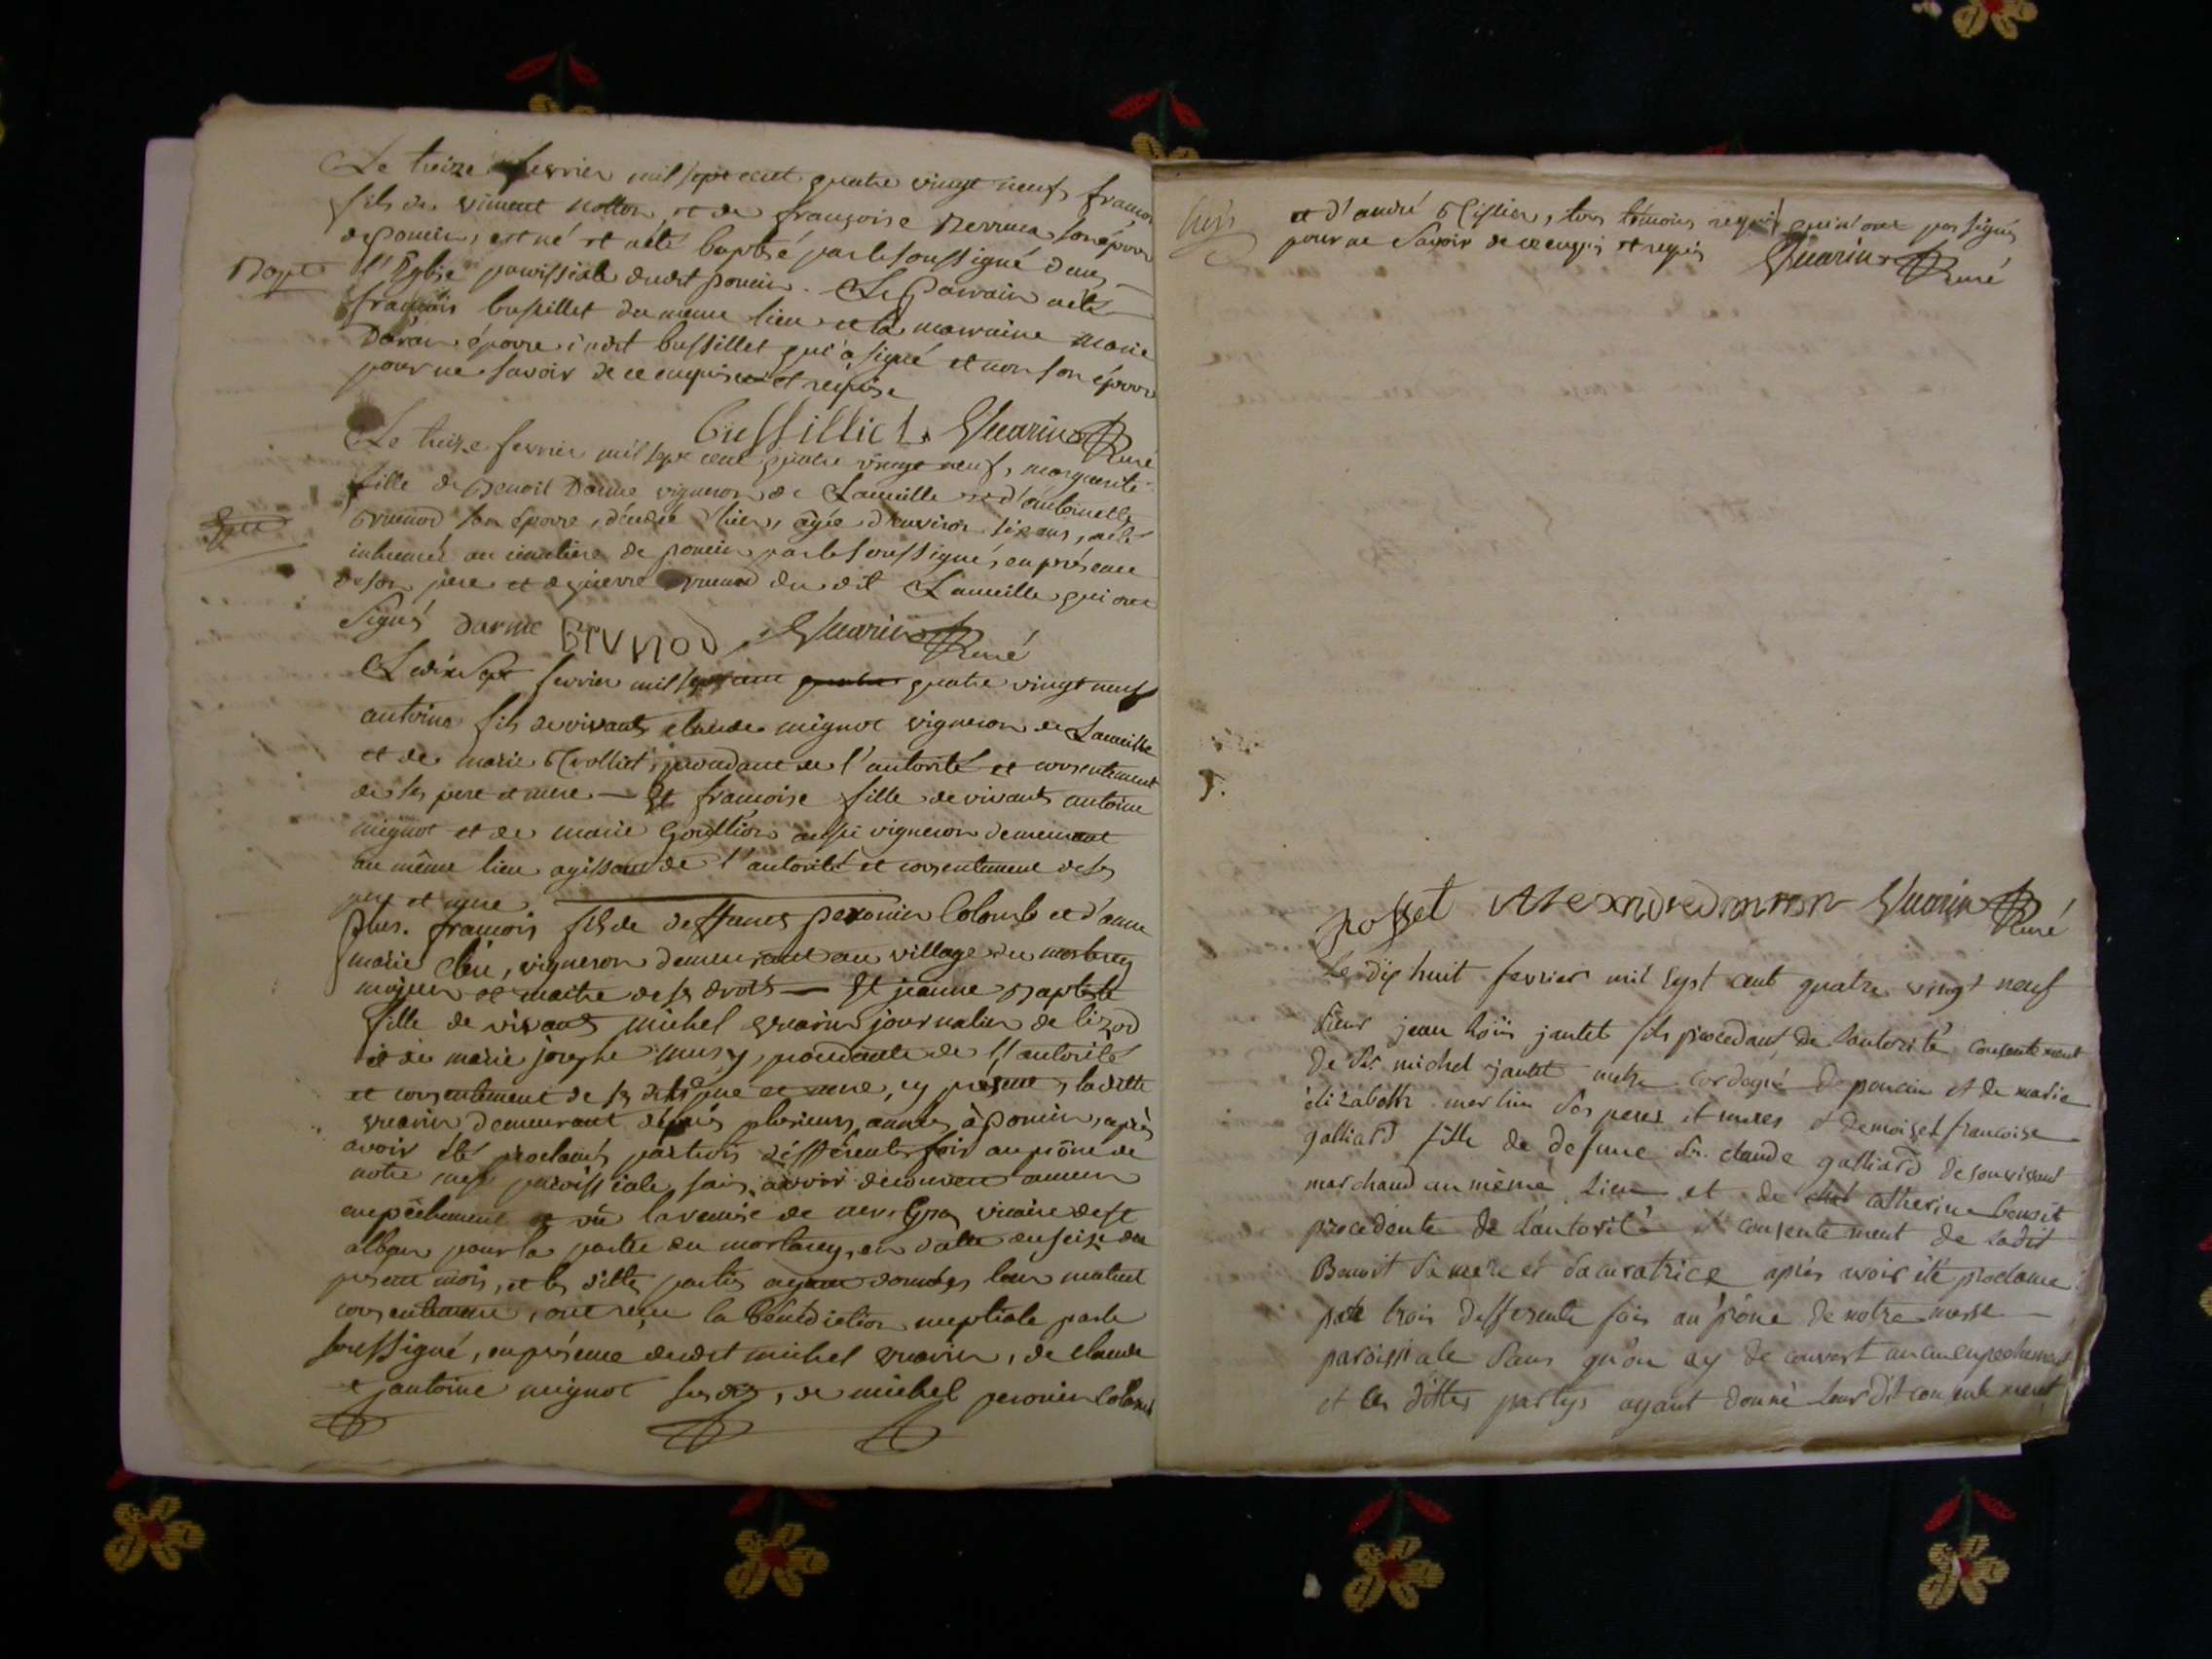 Le treize fevrier mil sept cent quatre vingt neuf, françois
fils de vincent notton, et de françoise Perruca son épouse
de poncin, est né et a été baptisé par le soussigné dans
Bapt l'Eglise paroissiale dudit poncin. Le Parrain a été
françois bussillet du meme lieu et la marraine marie
épouse dudit bussillet qui a signé et non son épouse
pour ne savoir de ce enquise et requise
Bussilliet Guarin Curé
Le treize fevrier mil sept cent quatre vingt neuf, marguerite
fille de Benoit Darme vigneron de Lameille et d'antoinette
Brunod son épouse, décédée hier, agée d'environ six ans, a été
inhumée au cimetiere de poncin par le soussigné, en présence
de son pere et de pierre Brunod du dit Lameille qui ont
signés Darme Brunod, Guarin Curé
Le dix sept fevrier mil sept cent quatre vingt neuf
antoine fils de vivants claude mignot vigneron de Lameille
et de marie procedant de l'autorité et consentement
de ses pere et mere — Et françoise fille de vivants antoine
mignot et de marie Gouttion aussi vigneron demeurant
au même lieu agissant de l'autorité et consentement de ses
pere et mere
Plus. françois fils de deffunts peronin Colomb et d'anne
marie vigneron demeurant au village du mortarey
majeur et maitre de ses droits — Et jeanne Baptiste
fille de vivants michel Guarin journalier de
et de marie josephe musy, procedante de l'autorité
et consentement de ses dits pere et mere, cy présent, la ditte
Guarin demeurant depuis plusieurs années à poncin, après
avoir été proclamés par trois différentes fois au prône de
notre messe paroissiale, sans avoir decouvert aucun
empêchement et vû la remise de vicaire de st
alban pour la partie du mortarey, en datte du seize du
present mois, et les dittes parties ayant données leur mutuel
consentement, ont reçu la Bénédiction nuptiale par le
soussigné, en présence dudit michel Guarin, de claude
et antoine mignot susdits, de michel peronin Colomb
et d'andré tous témoins requis qui n'ont pas signés
pour ne savoir de ce enquis et requis Guarin Curé
posset Guarin Curé
Le dix huit fevrier mil sept cent quatre vingt neuf
sieur jean loüis jantet fils procedant de lautorité consentement
de Sr. michel jantet metre cordagné de poncin et de marie
élizabeth merlin ses peres et meres et demoisel francoise
galliard fille de defunc Sr. claude galliard de son vivant
marchand au même lieu et de catherine benoit
procedente de l'autorité et consentement de ladit
Benoit sa mere et sa curatrice après avoir été proclame
par trois differente fois au prône de notre messe
paroissiale sans qu'on ay decouvert aucun enpechement
et les dittes partys ayant donné leur dit consentement